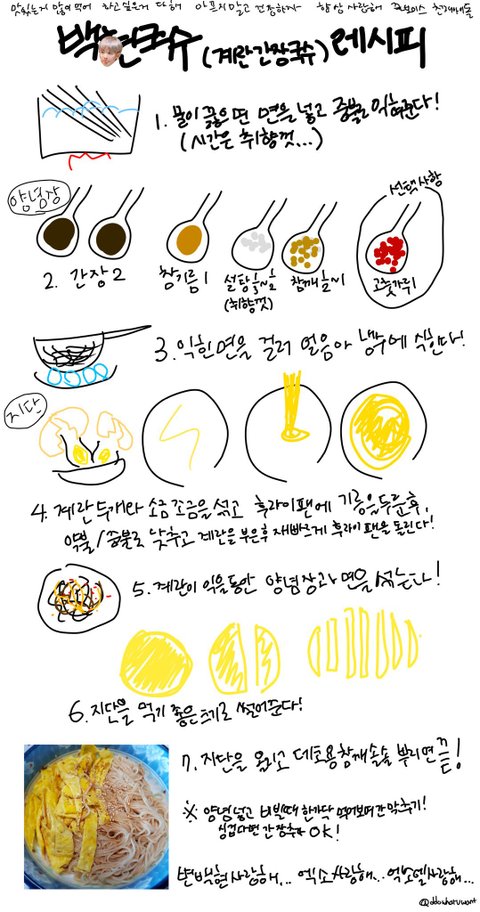 맛있는거 많이 먹어 하고싶은거 다 해 아프지말고 건강하자 항상 사랑해 천재만재들
백현국수 (계란간장국수) 레시피
1. 물이 끓으면 면을 넣고 중불로 익혀준다!
(시간은 취향껏...)
양념장
선택사항
2. 간장 2
참기름 1
설탕 ½~1
(취향껏)
참깨 ½~1
고춧가루 1
3. 익힌면을 걸러 얼음아 냉수에 식힌다!
지단
4. 계란 두개와 소금 조금을 섞고 후라이팬에 기름을 두른후,
약불/중불로 낮추고 계란을 부은후 재빠르게 후라이팬을 돌린다!
5. 계란이 익을동안 양념장과 면을 섞는다!
6. 지단을 먹기 좋은 크기로 썰어준다!
7. 지단을 올리고 데코용 참깨 솔솔 뿌리면 끝!
※ 양념넣고 비빌때 한가닥 먹어보며 간 맞추기!
싱겁다면 간장추가 OK!
변백현 사랑해... 엑소 사랑해... 엑소엘 사랑해...